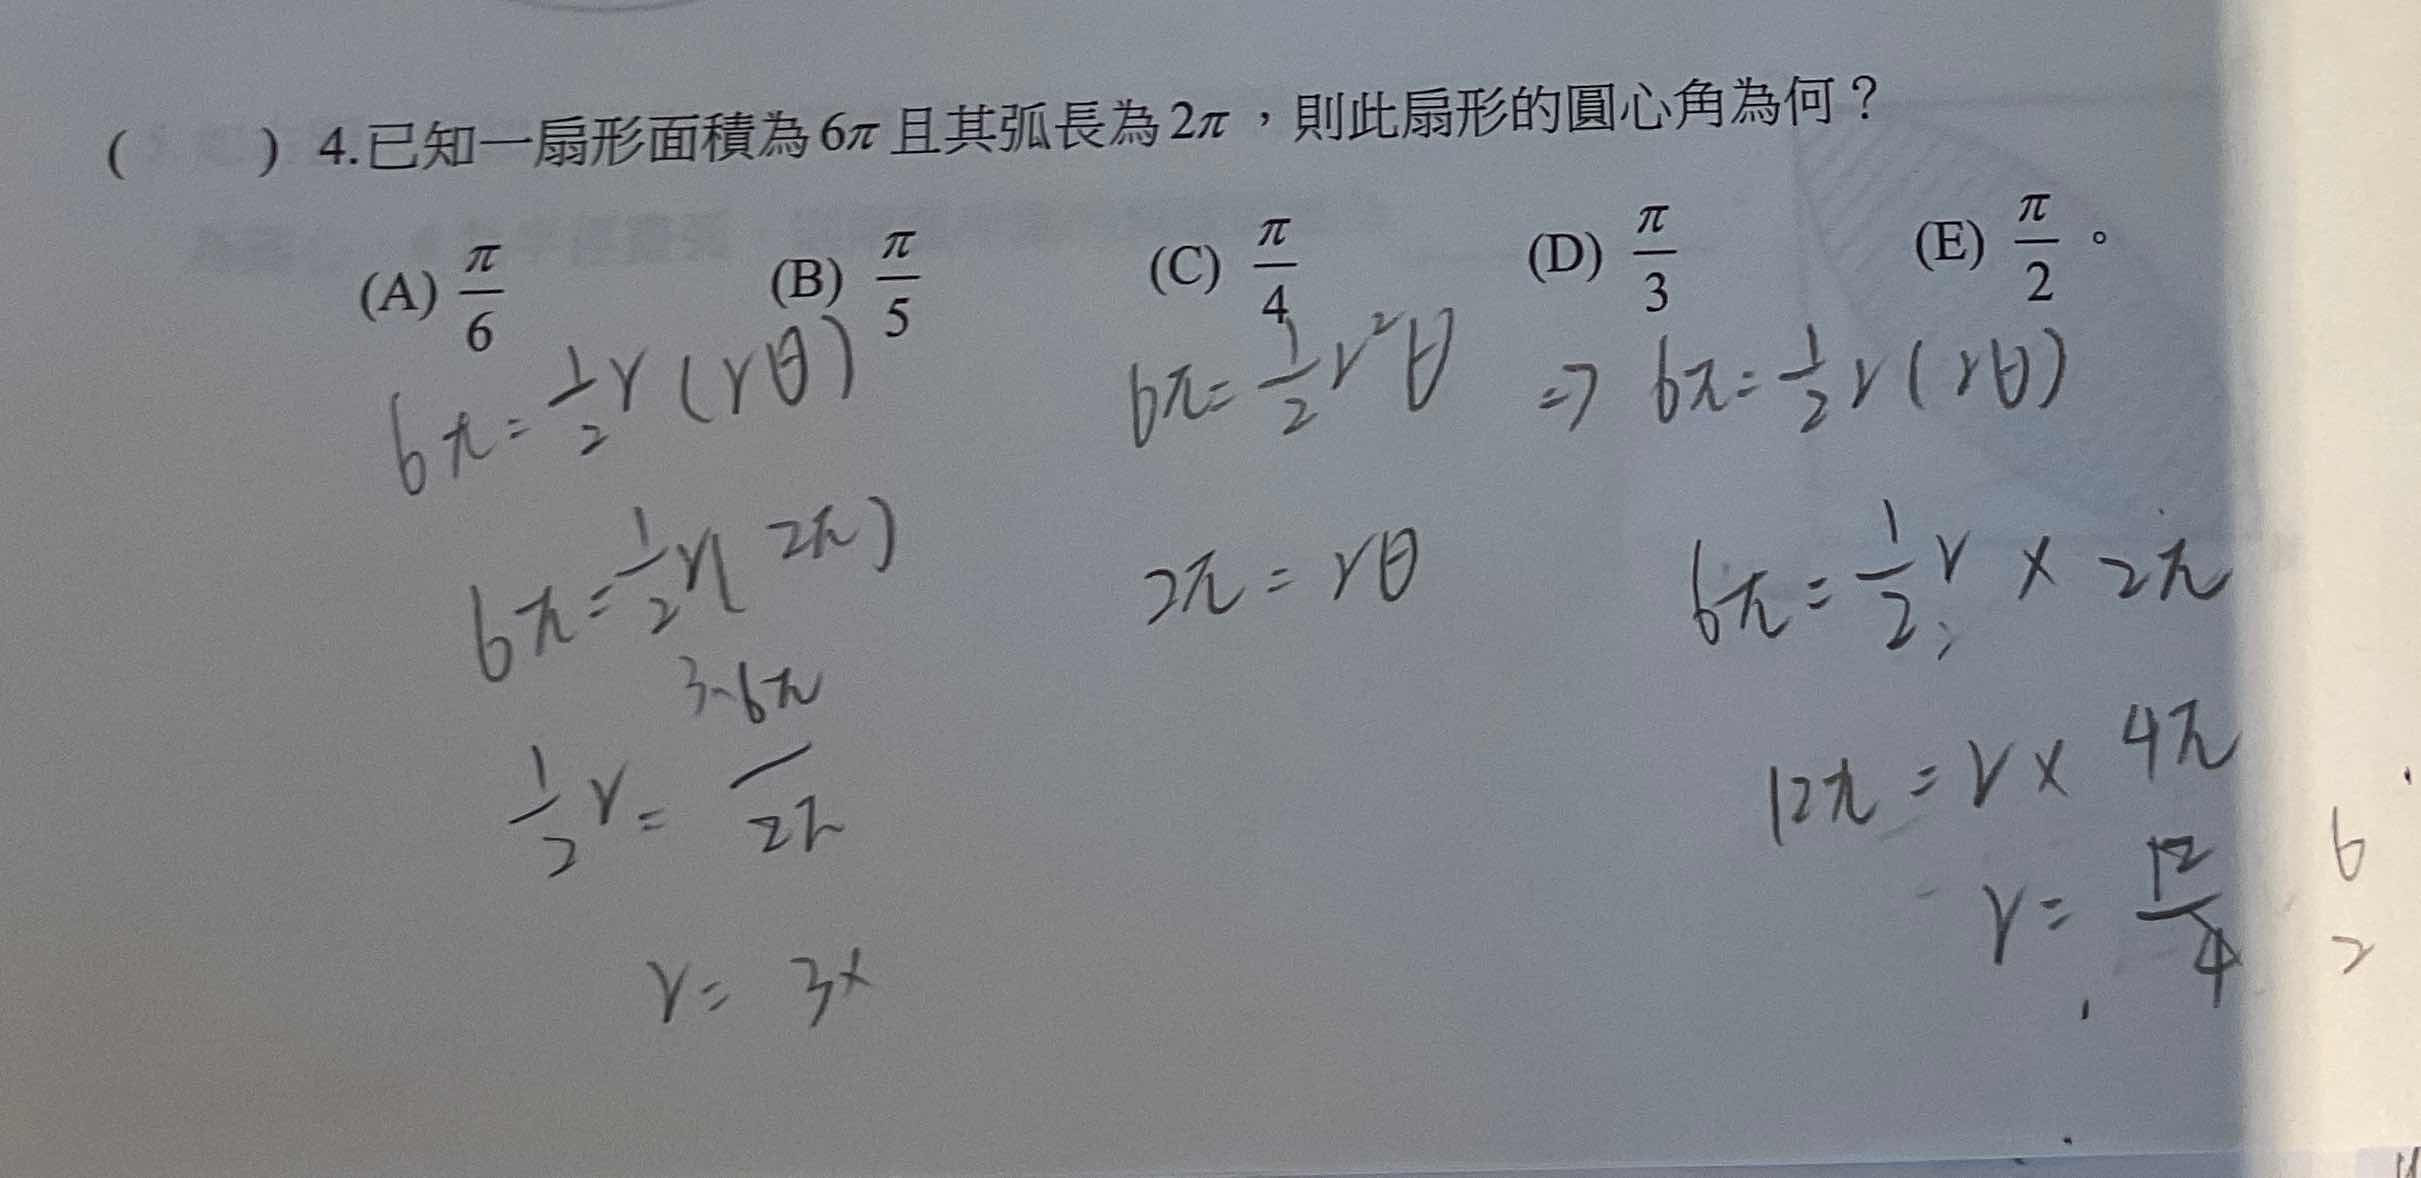 ( ) 4.已知一扇形面積為6π且其弧長為2π，則此扇形的圓心角為何？
(A) π/6 (B) π/5 (C) π/4 (D) π/3 (E) π/2。
6π=1/2r(rθ) 6π=1/2r²θ ⇒ 6π=1/2r(rθ)
6π=1/2r(2π) 2π=rθ 6π=1/2r×2π
1/2r=6π/2π 12π=r×4π
r=3× r=12/4
6
2